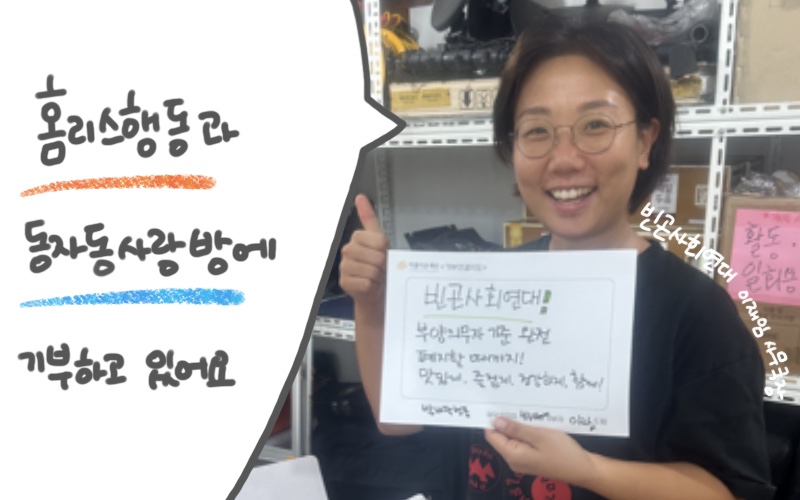 홈리스행동과
동자동사랑방에
기부하고 있어요
빈곤사회연대 이재임 사무국장
빈곤사회연대!
부양의무자 기준 완전
폐지할 때까지!
맛있게, 즐겁게, 건강하게, 함께!
활동,